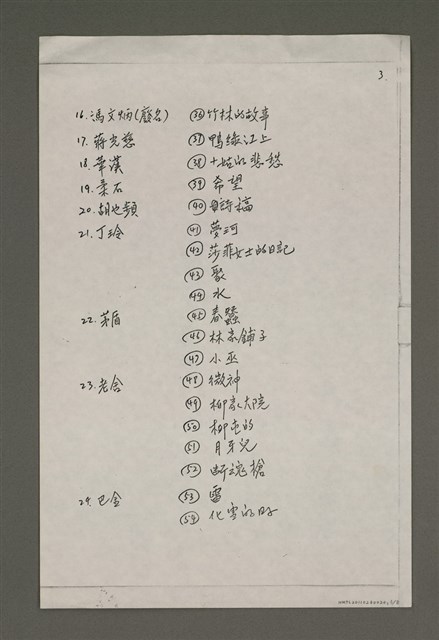 3
16. 馮文炳(廢名) ㊱竹林的故事
17. 蔣光慈 ㊲鴨綠江上
18. 華漢 ㊳十姑的悲愁
19. 柔石 ㊴希望
20. 胡也頻 ㊵
21. 丁玲 ㊶夢珂
㊷莎菲女士的日記
㊸
㊹水
22. 茅盾 ㊺春蠶
㊻林家鋪子
㊼小巫
23. 老舍 ㊽微神
㊾柳家大院
㊿柳屯的
(51)月牙兒
(52)断魂槍
24. 巴金 (53)雷
(54)化雪的日子